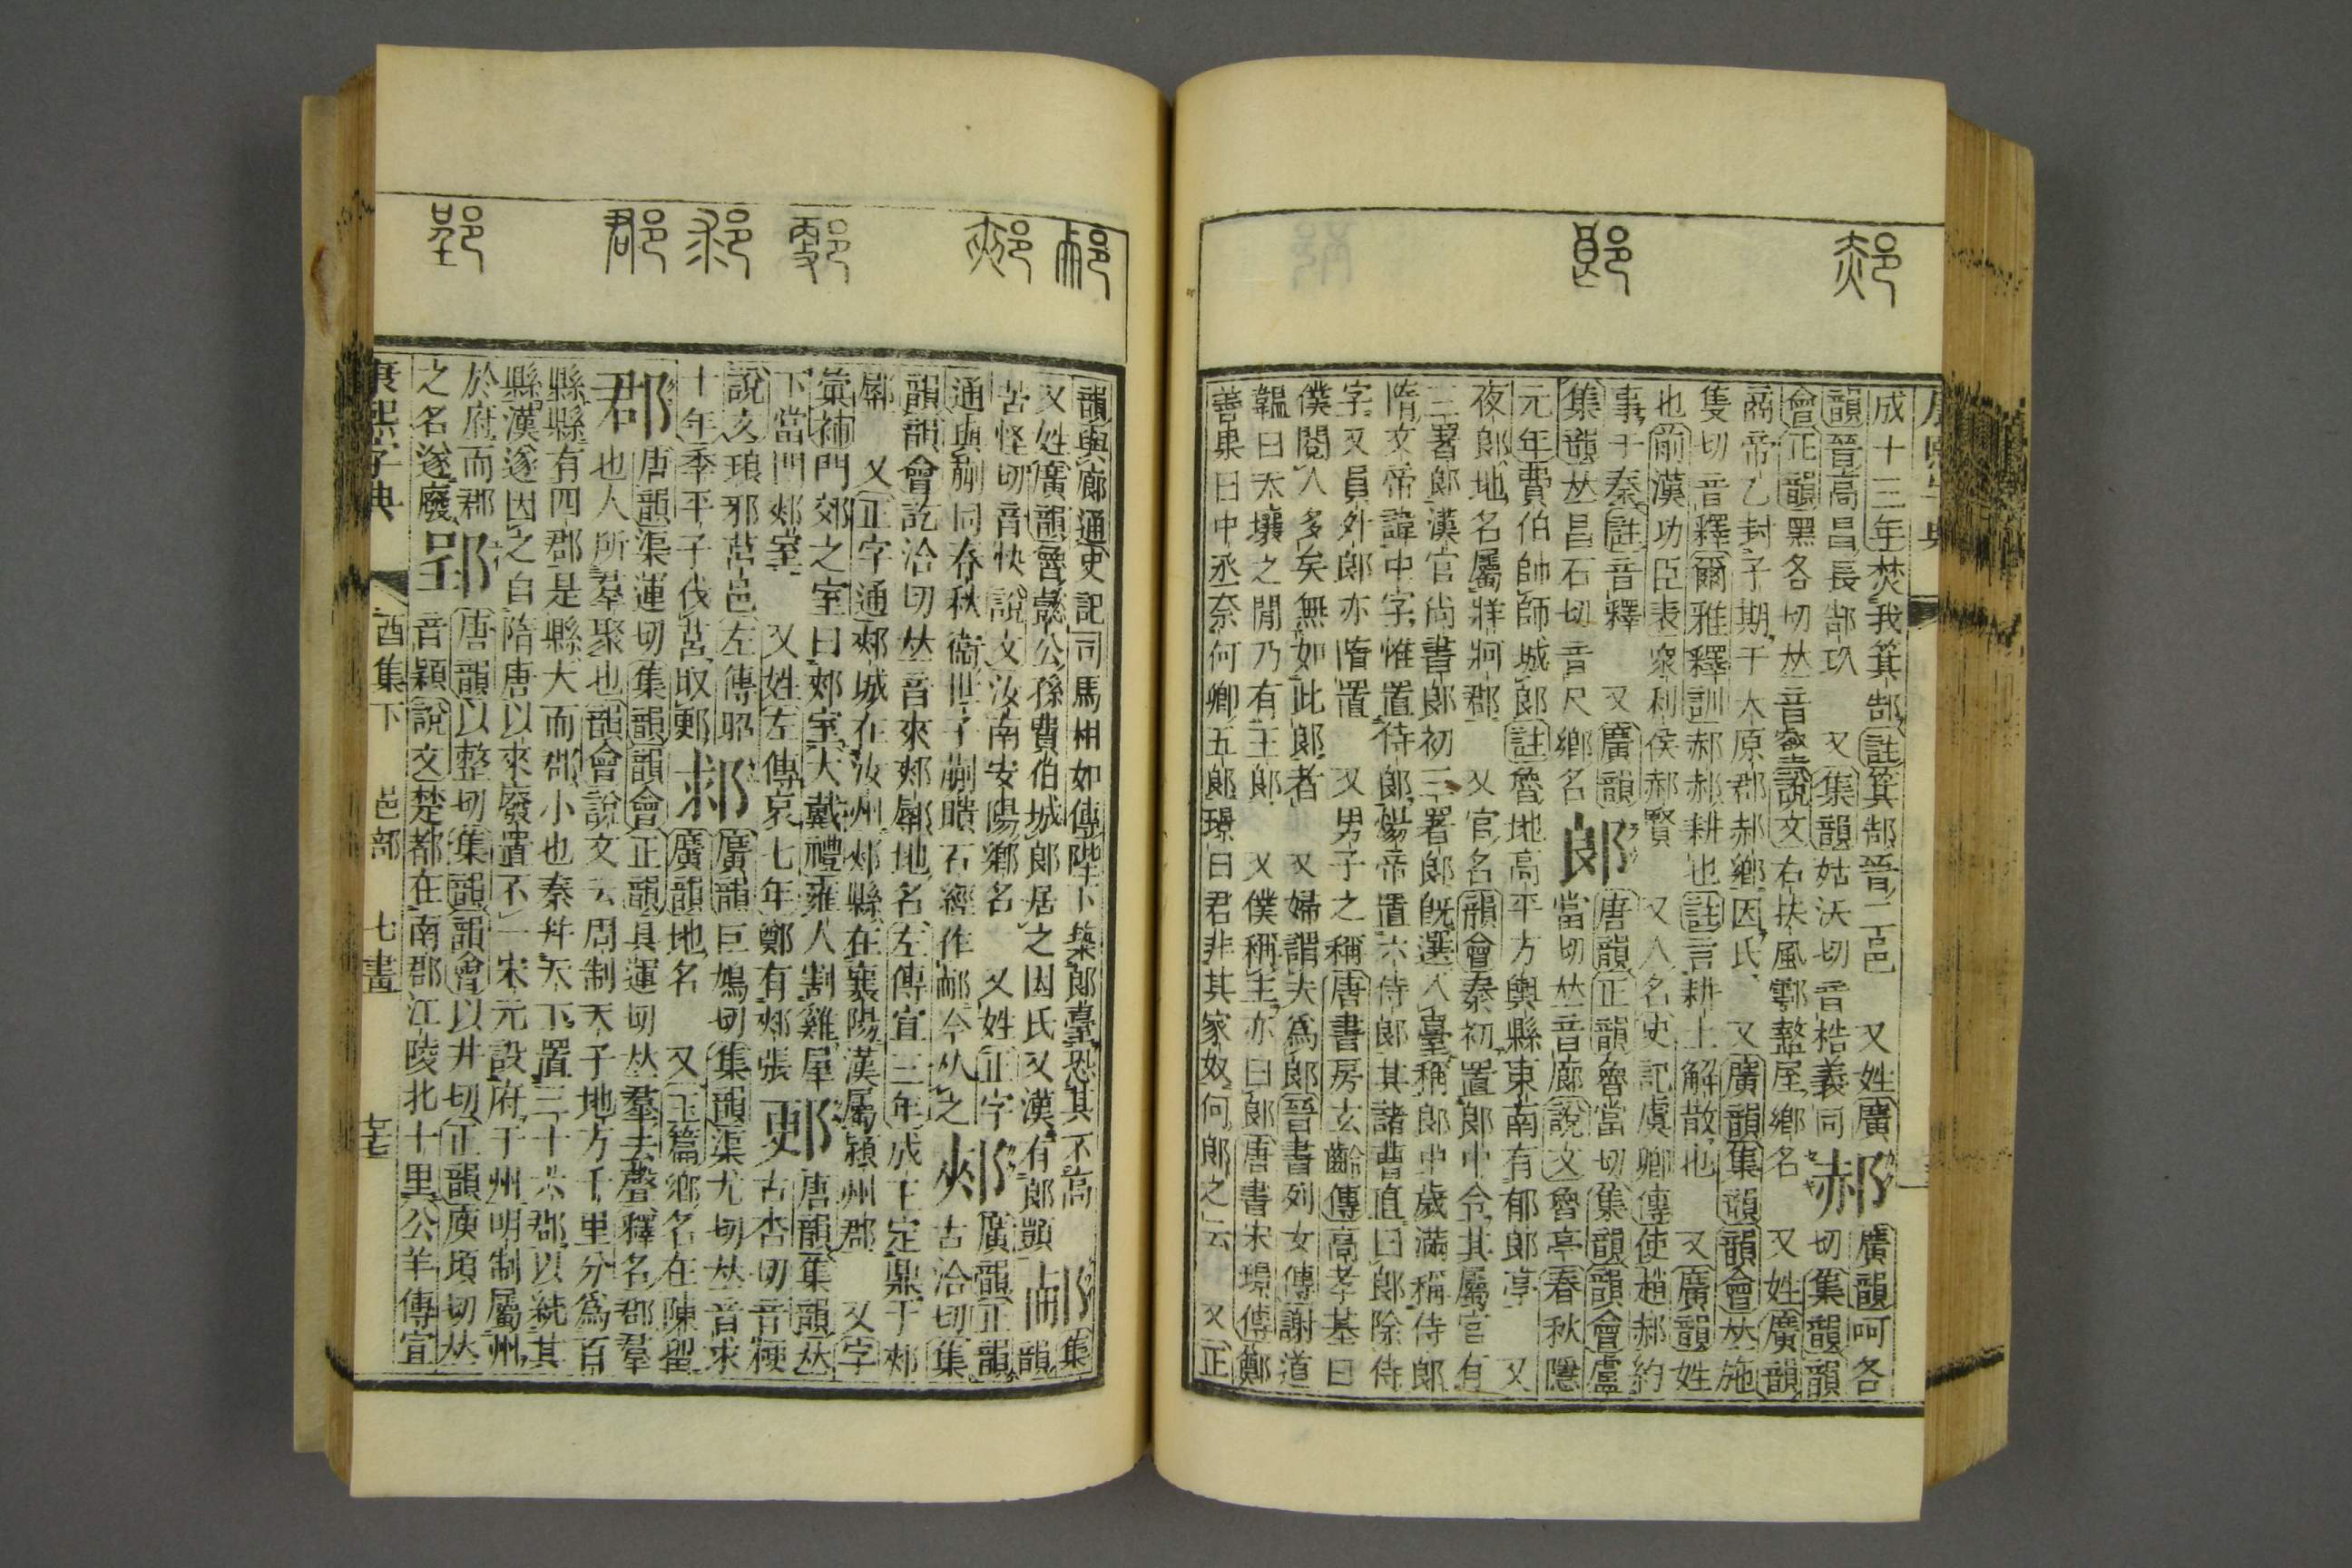 康熙字典
成十三年焚我箕郜註箕郜晉二邑 又姓廣
韻晉高昌長郜玖 又集韻姑沃切音梏義同
郝
廣韻呵各
切集韻韻
會正韻黑各切𠀤音壑說文右扶風鄠盩厔鄉名 又姓廣韻
商帝乙封子期于太原郡郝鄉因氏 又廣韻集韻韻會𠀤施
隻切音釋爾雅釋訓郝郝耕也註言耕土解散也 又廣韻姓
也前漢功臣表衆利侯郝賢 又人名史記虞卿傳使趙郝約
事于秦註音釋 又廣韻
集韻𠀤昌石切音尺鄉名
郎
唐韻正韻魯當切集韻韻會盧
當切𠀤音廊說文魯亭春秋隱
元年費伯帥師城郎註魯地高平方輿縣東南有郁郎亭 又
夜郎地名屬牂牁郡 又官名韻會秦初置郎中令其屬官有
三署郎漢官尚書郎初三署郎旣選入臺稱郎中歲滿稱侍郎
隋文帝諱中字惟置侍郎煬帝置六侍郎其諸曹直曰郎除侍
字又員外郎亦隋置 又男子之稱唐書房玄齡傳高孝基曰
僕閱人多矣無如此郎者 又婦謂夫爲郎晉書列女傳謝道
韞曰天壤之閒乃有王郎 又僕稱主亦曰郎唐書宋璟傳鄭
善果曰中丞奈何卿五郎璟曰君非其家奴何郎之云 又正
韻與廊通史記司馬相如傳陛下築郎臺恐其不高
又姓廣韻魯懿公孫費伯城郎居之因氏又漢有郎顗
集
韻
苦怪切音快說文汝南安陽鄉名 又姓正字
通與蒯同春秋衞世子蒯聵石經作今从之
郟
廣韻正韻
古洽切集
韻韻會訖洽切𠀤音夾郟鄏地名左傳宣三年成王定鼎于郟
鄏 又正字通郟城在汝州郟縣在襄陽漢屬潁州郡 又字
彙補門郟之室曰郟室大戴禮雍人割雞屋
下當門郟室 又姓左傳哀七年鄭有郟張
郠
唐韻集韻𠀤
古杏切音梗
說文琅邪莒邑左傳昭
十年季平子伐莒取郠
廣韻巨鳩切集韻渠尤切𠀤音求
廣韻地名 又玉篇鄉名在陳留
郡
唐韻渠運切集韻韻會正韻具運切𠀤羣去聲釋名郡羣
也人所羣聚也韻會說文云周制天子地方千里分爲百
縣縣有四郡是縣大而郡小也秦幷天下置三十六郡以統其
縣漢遂因之自隋唐以來廢置不一宋元設府于州明制屬州
於府而郡
之名遂廢
郢
唐韻以整切集韻韻會以井切正韻庾頃切𠀤
音潁說文楚都在南郡江陵北十里公羊傳宣
康熙字典 酉集下 邑部 七畫